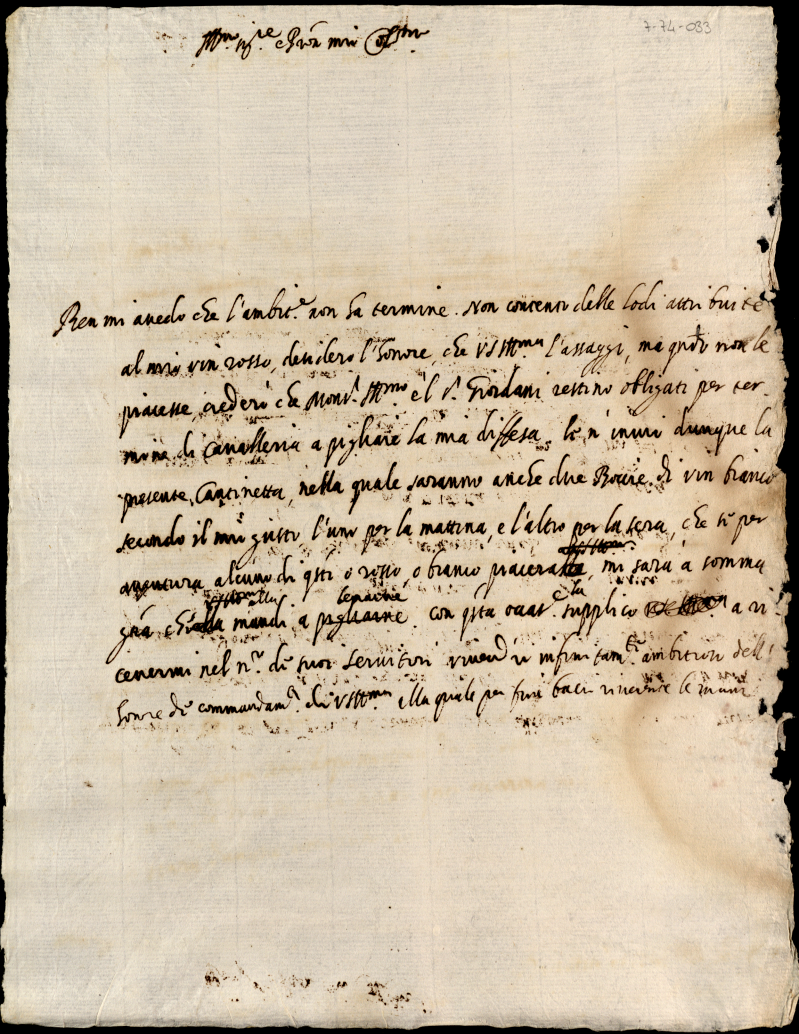 7-74-033
Ill.mo sig.re e Pron mio Oss.mo
Ben mi avedo che l'ambit.e non ha termine. Non contento delle lodi attribuite
al mio vin rosso, desidero l'honore, che VS Ill.ma l'assaggi, ma qndo non le
piacesse, crederò che Mons.r Ill.mo e 'l s.r Giordani restino obligati per ter-
mine di Cavalleria a pigliare la mia diffesa. Le n' invio dunque la
presente Cantinetta, nella quale saranno anche due Boccie di vin bianco
secondo il mio gusto, l'uno per la mattina, e l'altro per la sera, che se per
aventura alcuno di qsti o rosso, o bianco piacerà mi sarà a somma
gra ch' ella mandi a pigliarne. con qsta occas.e la supplico a ri-
tenermi nel n.o de suoi servitori vivendo io infinitam.te ambitioso dell'
honore de commandam.ti di VS Ill.ma alla quale per fine bacio riverente le mani